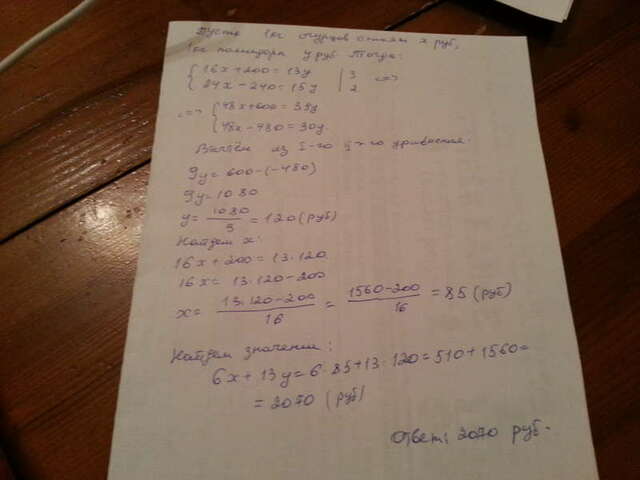 Пусть 1 кг огурцов стоит x руб,
1 кг помидора y руб. Тогда:
{ 16x + 200 = 13y | 3 <=>
{ 24x - 240 = 15y | 2
<=> { 48x + 600 = 39y
{ 48x - 480 = 30y.
Вычтем из 1-го 2-го уравнения:
9y = 600 - (-480)
9y = 1080
y = 1080/9 = 120 (руб)
Найдем x:
16x + 200 = 13·120
16x = 13·120 - 200
x = 13·120-200/16 = 1560-200/16 = 85 (руб)
Найдем значения:
6x + 13y = 6·85 + 13·120 = 510 + 1560 =
= 2070 (руб)
Ответ: 2070 руб.